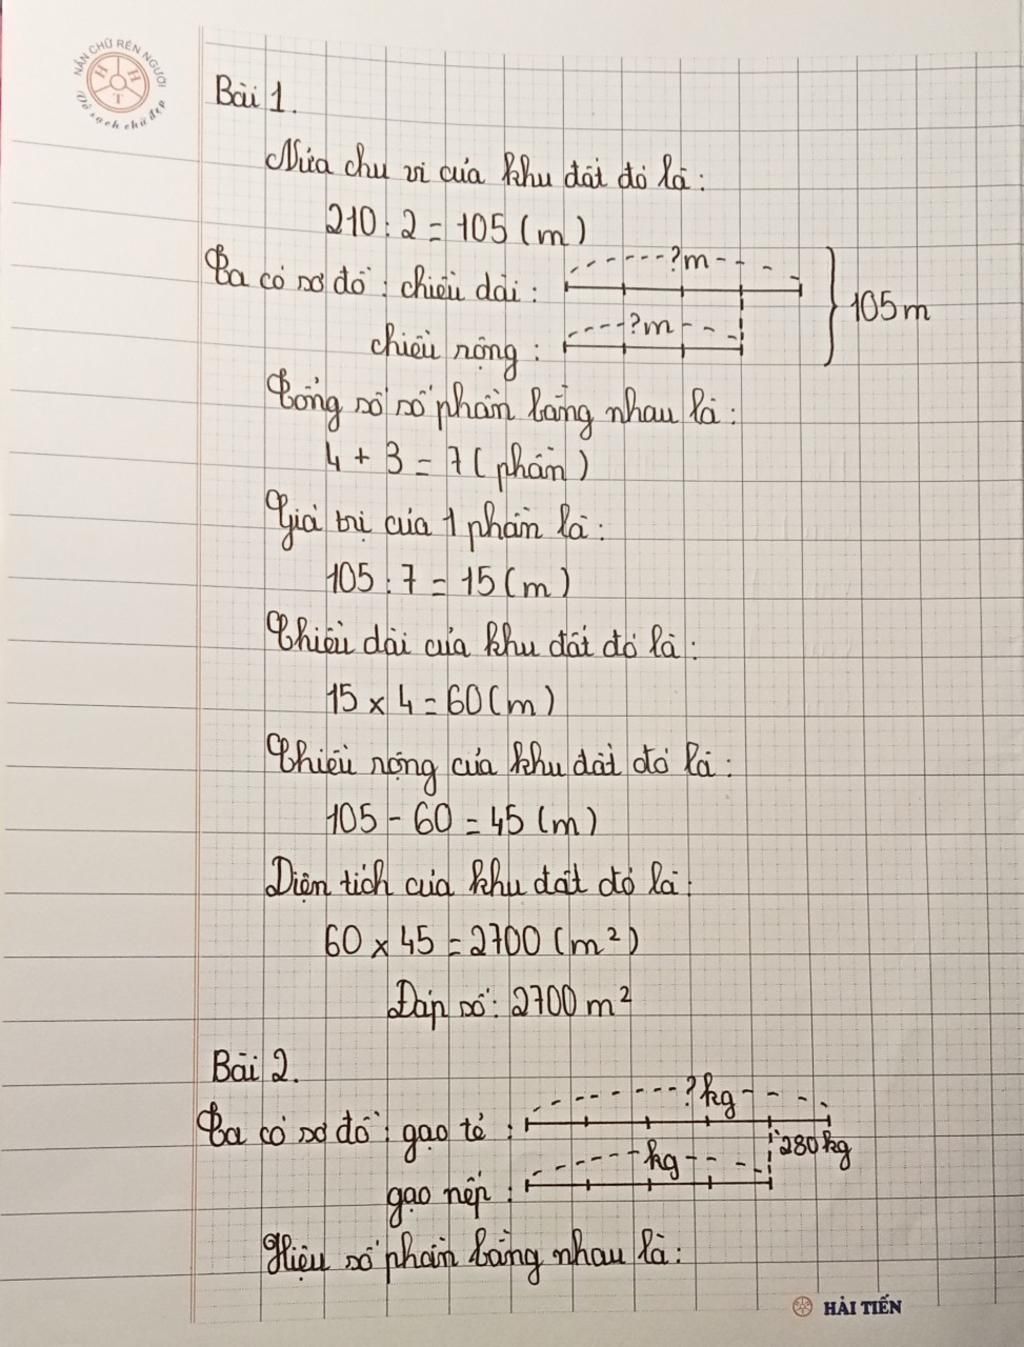 NẮN CHỮ RÈN NGƯỜI
H H
T
Vở sạch chữ đẹp
Bài 1.
Nửa chu vi của khu đất đó là:
210 : 2 = 105 (m)
?m
Ta có sơ đồ : chiều dài :
105 m
?m
chiều rộng :
Tổng số số phần bằng nhau là :
4 + 3 = 7 (phần)
Giá trị của 1 phần là :
105 : 7 = 15 (m)
Chiều dài của khu đất đó là :
15 x 4 = 60 (m)
Chiều rộng của khu đất đó là :
105 - 60 = 45 (m)
Diện tích của khu đất đó là :
60 x 45 = 2700 (m²)
Đáp số : 2700 m²
Bài 2.
?kg
Ta có sơ đồ : gạo tẻ :
280 kg
kg
gạo nếp :
Hiệu số phần bằng nhau là :
HẢI TIẾN